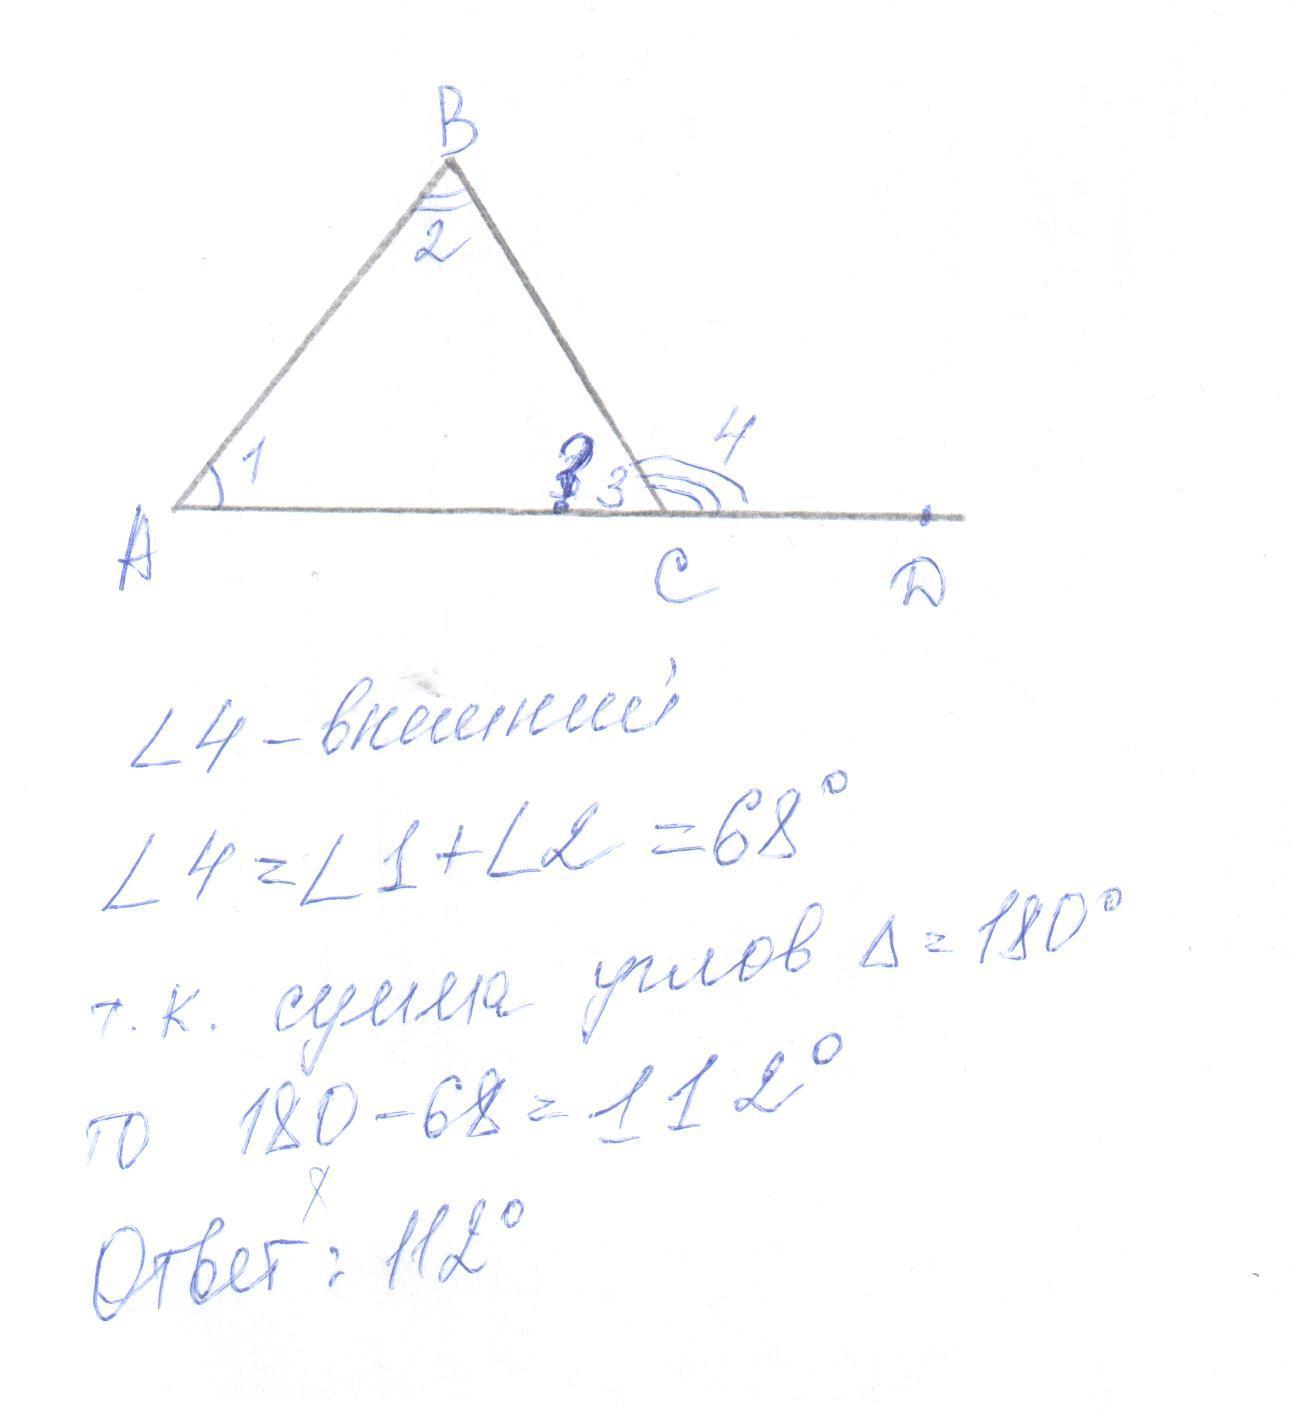 B
2
1
4
? 3
A
C
D
∠4 – внешний
∠4 = ∠1 + ∠2 = 68°
т.к. сумма углов Δ = 180°
то 180 – 68 = 112°
Ответ: 112°